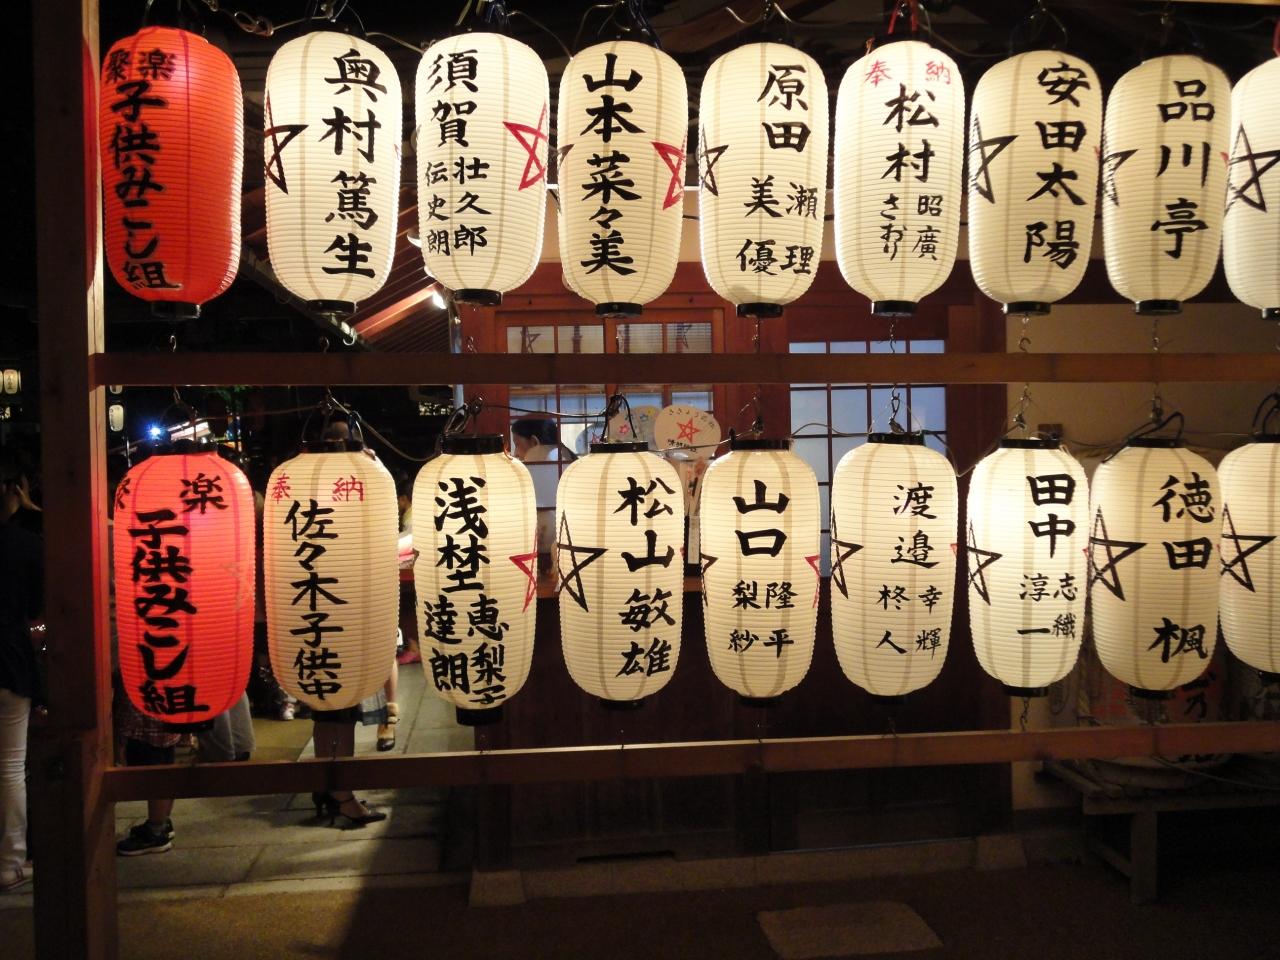 聚楽
子供みこし組
奥村篤生
須賀
壮久郎
伝史朗
山本菜々美
原田
瀬理
美優
奉納
松村
昭廣
さおり
安田太陽
品川亭
楽
子供みこし組
奉納
佐々木子供中
浅埜
恵梨子
達朗
松山敏雄
山口
隆平
梨紗
渡邉
幸輝
柊人
田中
志織
淳一
徳田楓